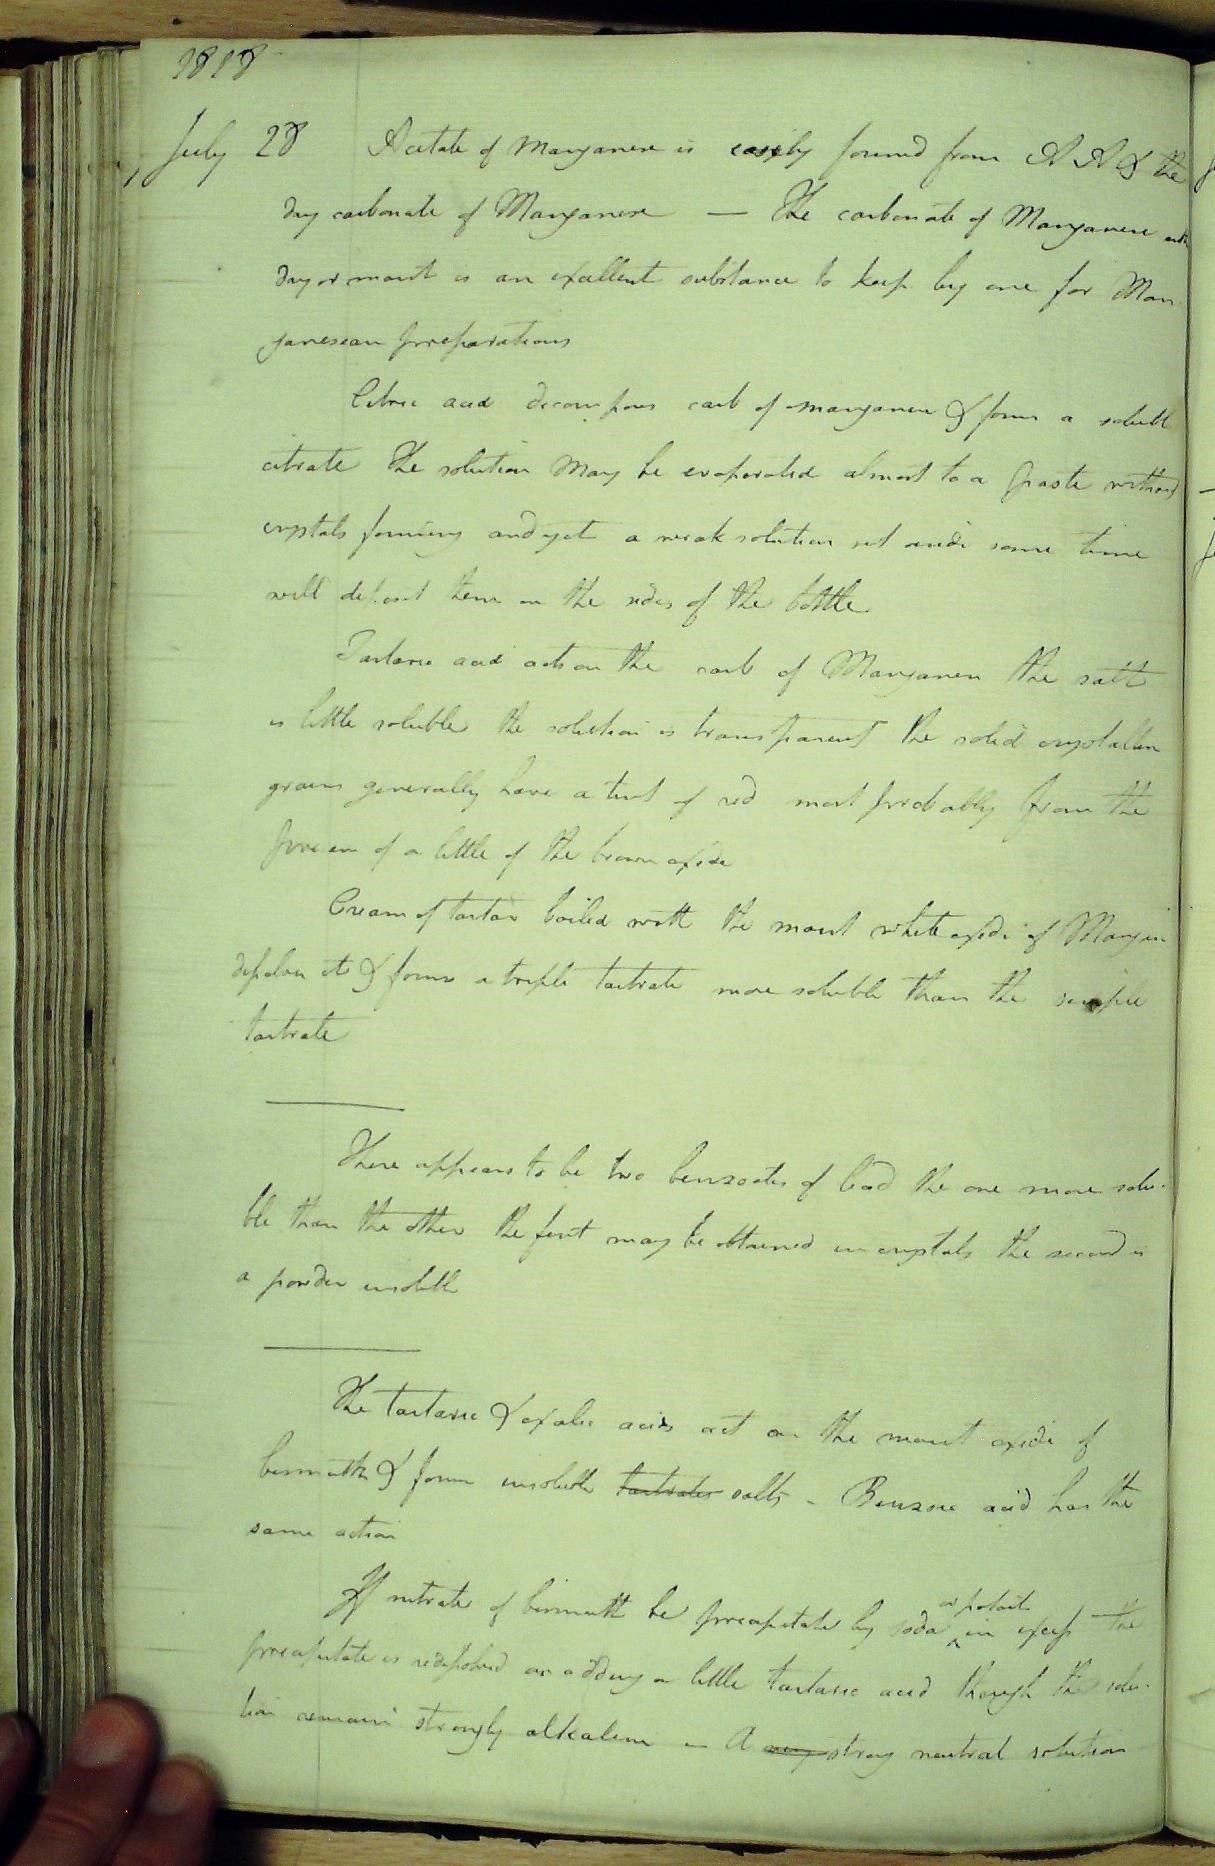 1818
July 28 Acetate of Manganese is easily formed from A A & the
dry carbonate of Manganese — The carbonate of Manganese
dry or moist is an excellent substance to keep by one for Man
ganesian preparations
Citric acid decomposes carb of manganese & forms a soluble
citrate The solution may be evaporated almost to a paste without
crystals forming and yet a weak solution set aside some time
will deposit them on the sides of the bottle
Tartaric acid acts on the carb of Manganese the salt
is little soluble the solution is transparent the solid crystalline
grains generally have a tint of red most probably from the
presence of a little of the brown oxide
Cream of tartar boiled with the moist white oxide of Mangan
dissolves it & forms a triple tartrate more soluble than the simple
tartrate
There appears to be two benzoates of lead the one more solu-
ble than the other the first may be obtained in crystals the second is
a powder insoluble
The tartaric & oxalic acids act on the moist oxide of
bismuth & form insoluble tartrates salts - Benzoic acid has the
same action
If nitrate of bismuth be precipitate by soda or potash in excess the
precipitate is redissolved on adding a little tartaric acid though the solu-
tion remain strongly alkaline — A very strong neutral solution